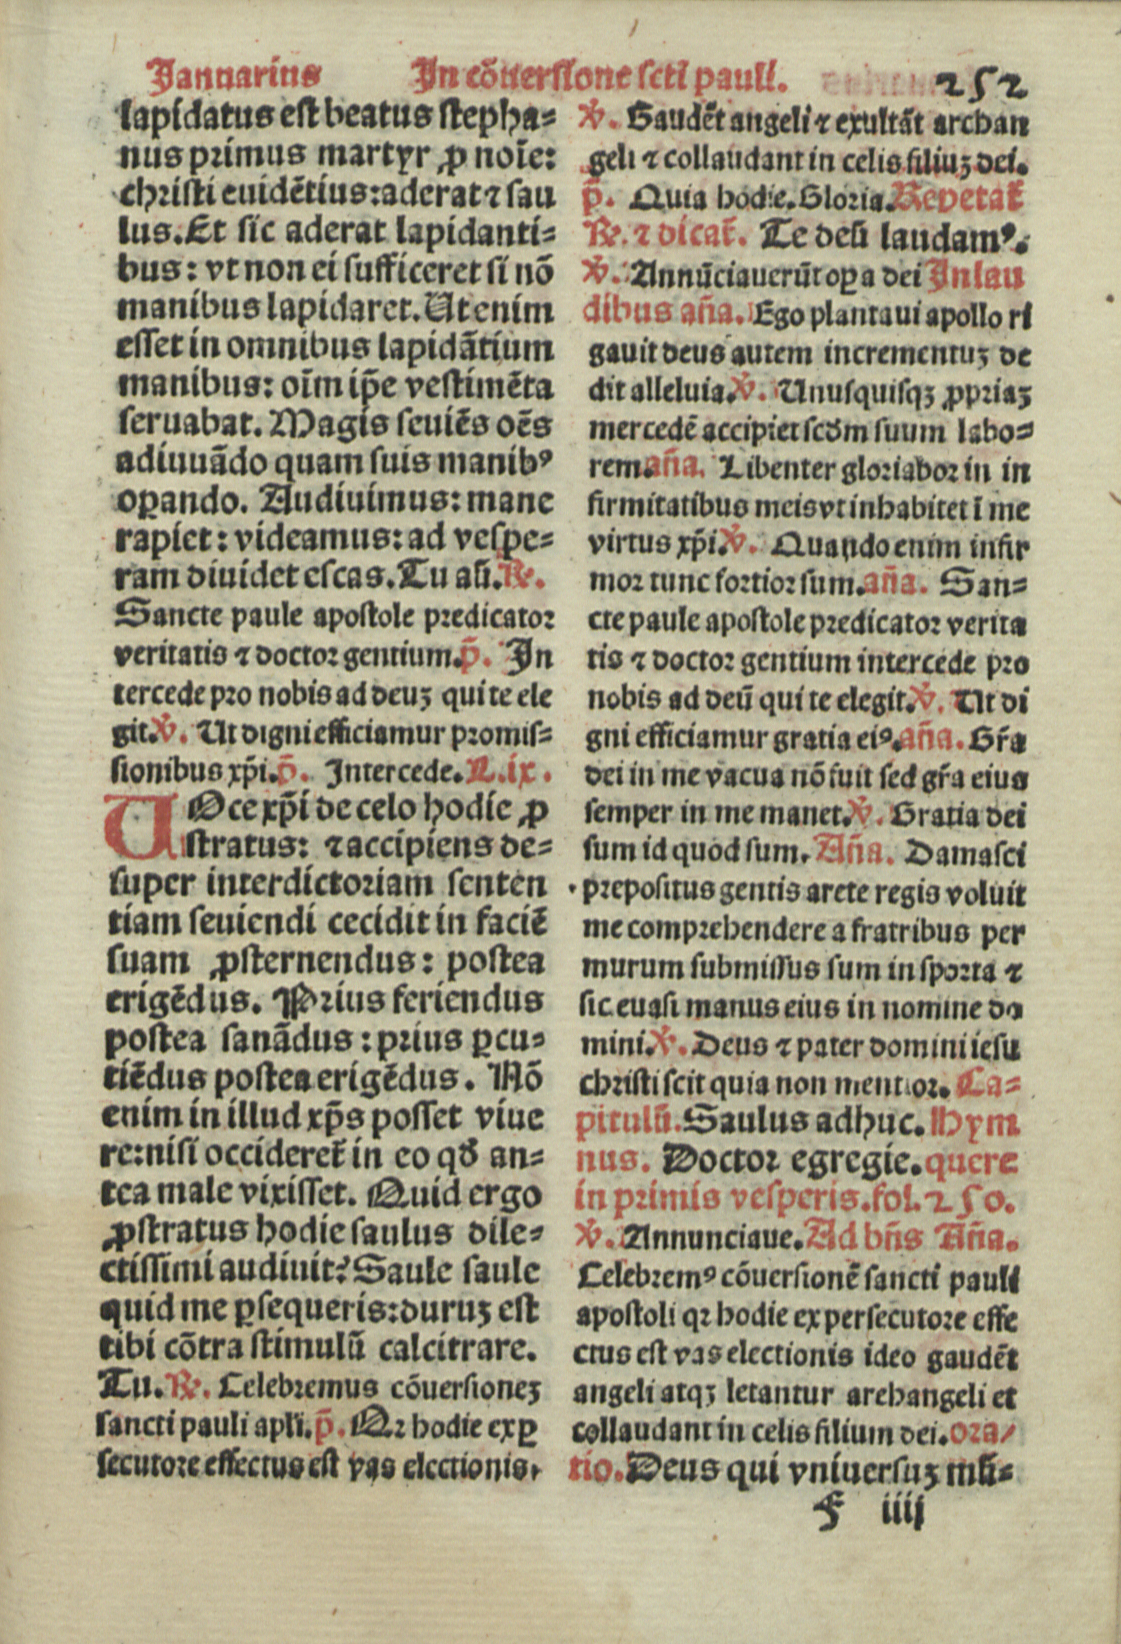 Januarius In cōuersione scti pauli. 252
lapidatus est beatus stepha-
nus primus martyr ꝓ noīe:
christi euidētius: aderat ⁊ sau
lus. Et sic aderat lapidanti-
bus: vt non ei sufficeret si nō
manibus lapidaret. Ut enim
esset in omnibus lapidātium
manibus: oīm ip̄e vestimēta
seruabat. Magis seuiēs oēs
adiuuādo quam suis manibꝰ
oꝑando. Audiuimus: mane
rapiet: videamus: ad vespe-
ram diuidet escas. Tu aū. ℟.
Sancte paule apostole predicator
veritatis ⁊ doctor gentium. p̄. In
tercede pro nobis ad deuʒ qui te ele
git. ℣. Ut digni efficiamur promis-
sionibus xp̄i. p̄. Intercede. L. ix.
UOce xp̄i de celo hodie ꝓ
stratus: ⁊ accipiens de-
super interdictoriam senten
tiam seuiendi cecidit in faciē
suam ꝓsternendus: postea
erigēdus. Prius feriendus
postea sanādus: prius ꝑcu-
tiēdus postea erigēdus. Nō
enim in illud xp̄s posset viue
re: nisi occideret̄ in eo qđ an-
tea male vixisset. Quid ergo
ꝓstratus hodie saulus dile-
ctissimi audiuit? Saule saule
quid me ꝑsequeris: duruʒ est
tibi cōtra stimulū calcitrare.
Tu. ℟. Celebremus cōuersioneʒ
sancti pauli apl̄i. p̄. Qꝛ hodie ex ꝑ
secutore effectus est vas electionis.
℣. Gaudēt angeli ⁊ exultāt archan
geli ⁊ collaudant in celis filiuʒ dei.
p̄. Quia hodie. Gloria. Repetat̄
℟. ⁊ dicat̄. Te deū laudamꝰ.
℣. Annūciauerūt oꝑa dei In lau
dibus aña. Ego plantaui apollo ri
gauit deus autem incrementuʒ de
dit alleluia. ℣. Unusquisqʒ ꝓpriaʒ
mercedē accipiet scđm suum labo-
rem. aña. Libenter gloriabor in in
firmitatibus meis vt inhabitet ī me
virtus xp̄i. ℣. Quando enim infir
mor tunc fortior sum. aña. San-
cte paule apostole predicator verita
tis ⁊ doctor gentium intercede pro
nobis ad deū qui te elegit. ℣. Ut di
gni efficiamur gratia eiꝰ. aña. Gr̄a
dei in me vacua nō fuit sed gr̄a eius
semper in me manet. ℣. Gratia dei
sum id quod sum. Aña. Damasci
prepositus gentis arete regis voluit
me comprehendere a fratribus per
murum submissus sum in sporta ⁊
sic euasi manus eius in nomine do
mini. ℣. Deus ⁊ pater domini iesu
christi scit quia non mentior. Ca-
pitulū. Saulus adhuc. Hym
nus. Doctor egregie. quere
in primis vesperis. fol. 250.
℣. Annunciaue. Ad bn̄s Aña.
Celebremꝰ cōuersionē sancti pauli
apostoli qꝛ hodie ex persecutore effe
ctus est vas electionis ideo gaudēt
angeli atqʒ letantur archangeli et
collaudant in celis filium dei. ora/
tio. Deus qui vniuersuʒ mū-
F iiij